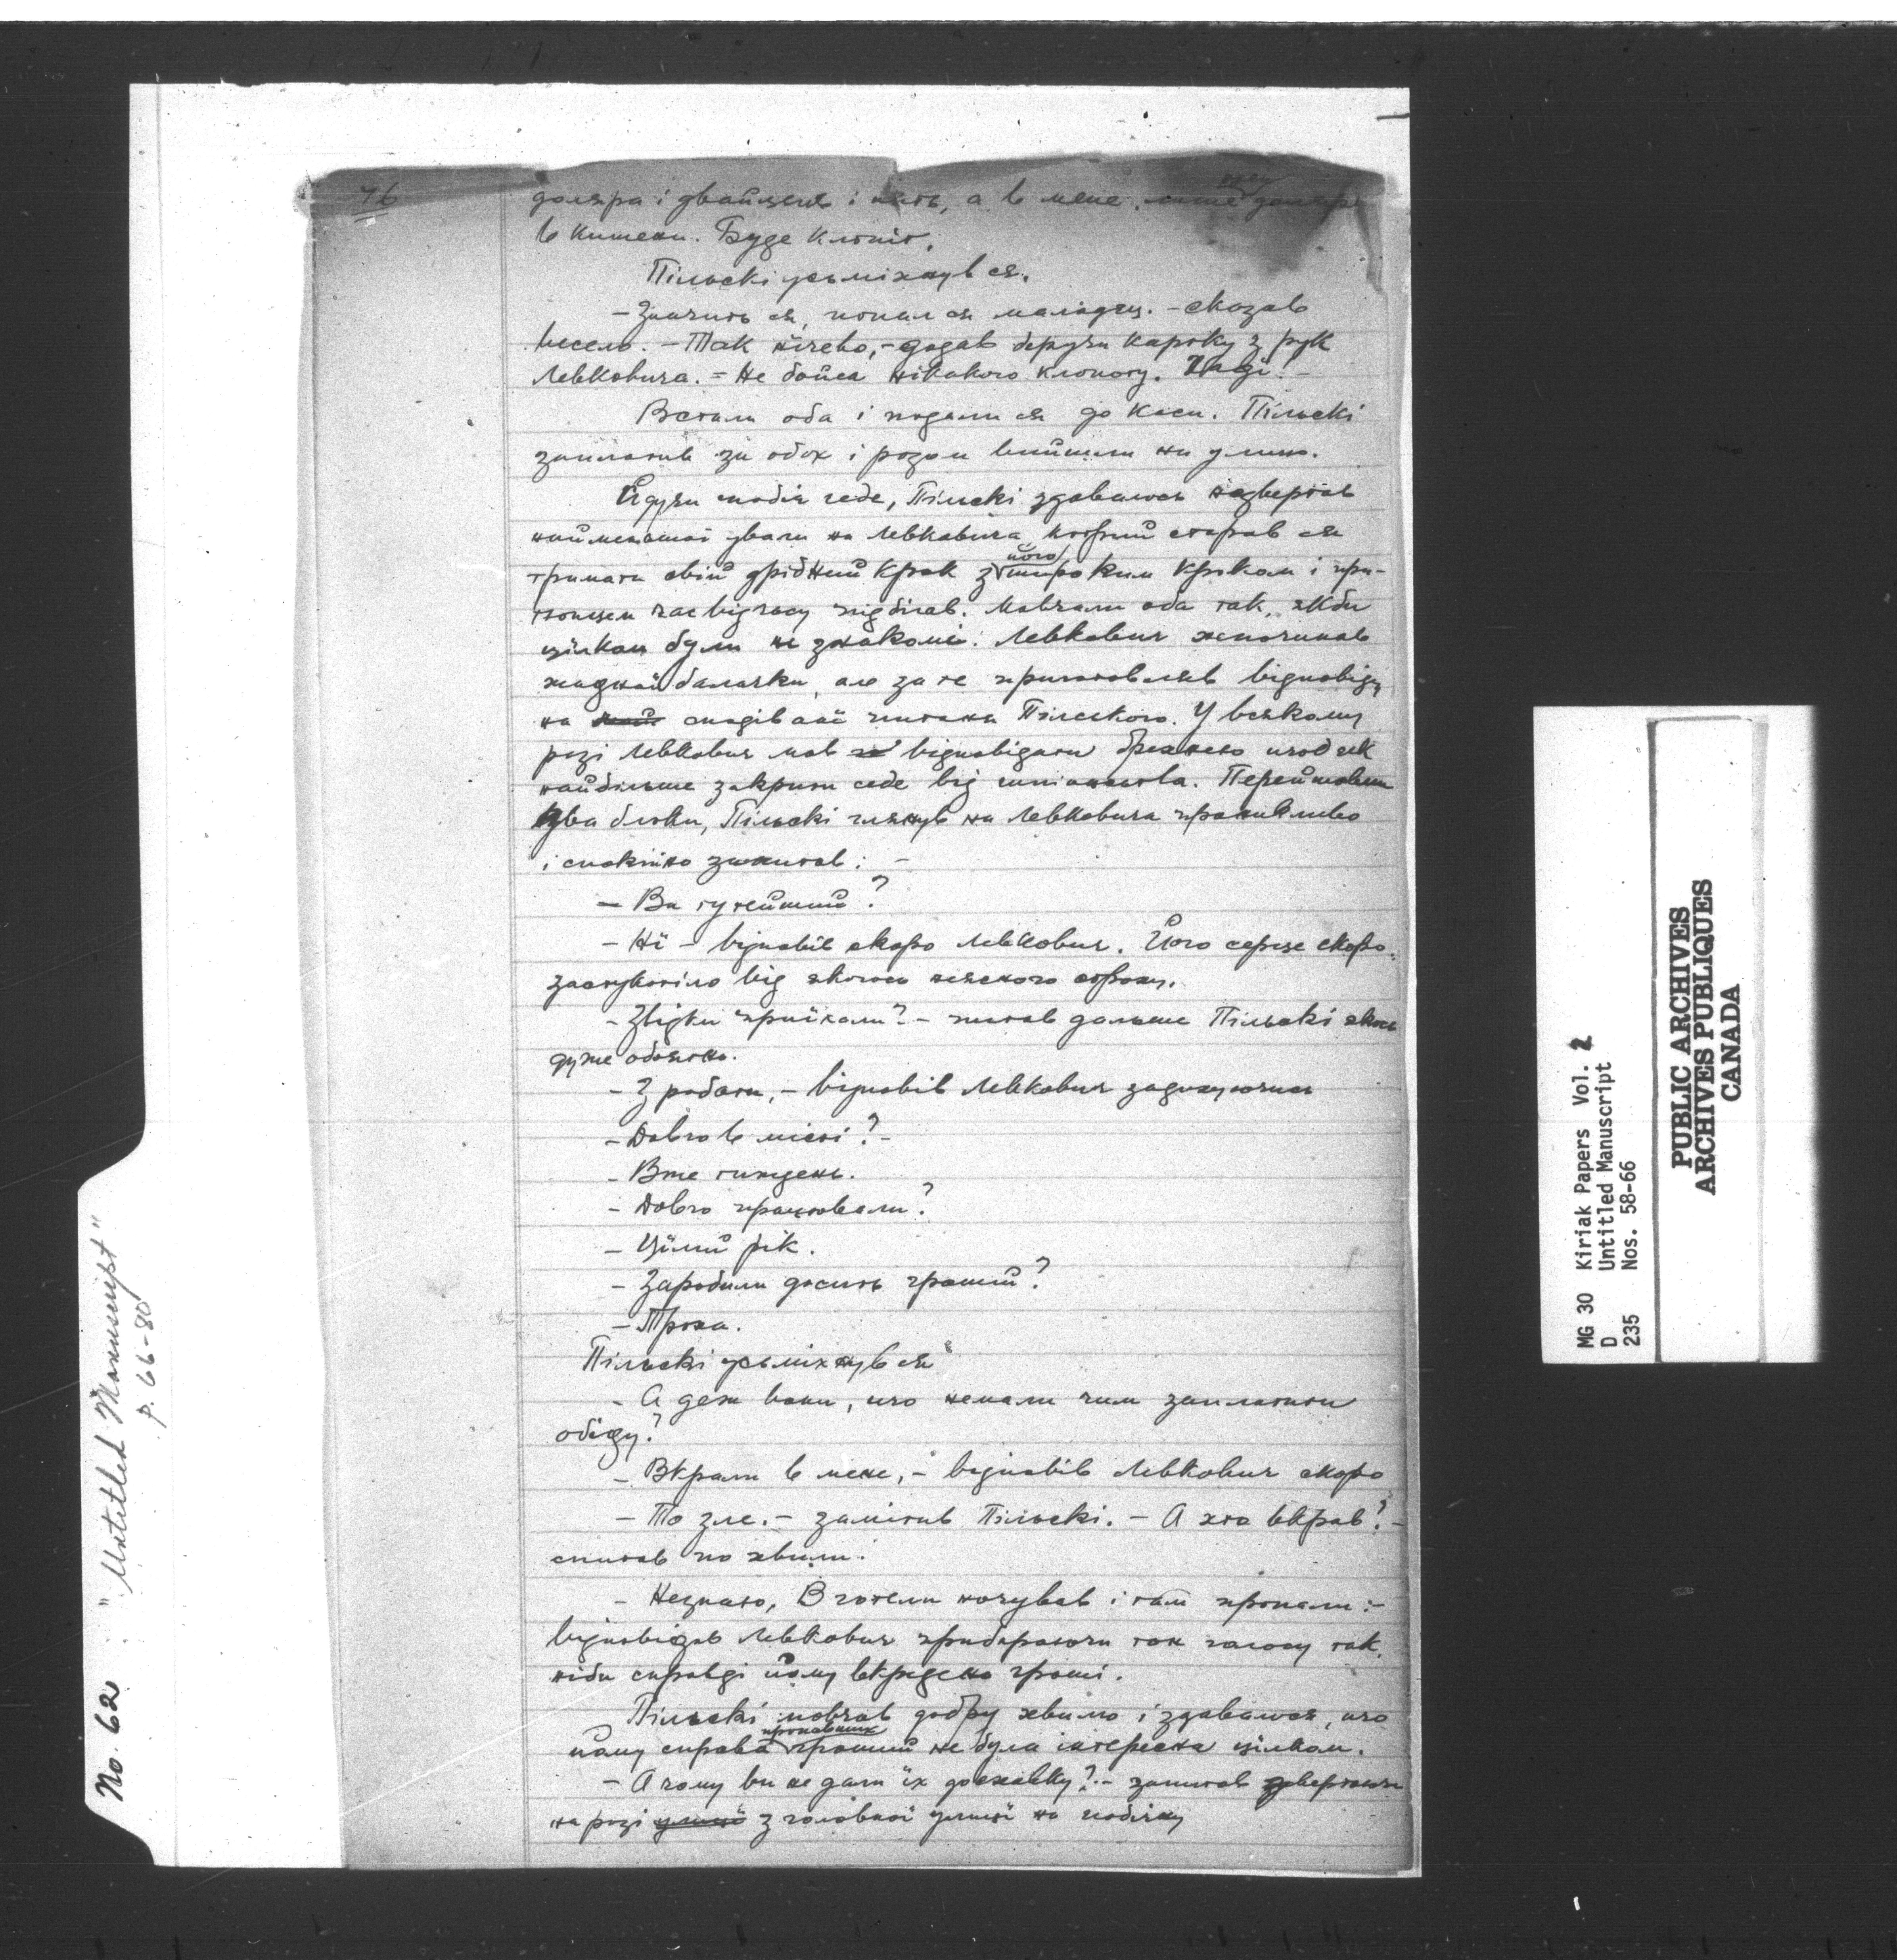 76
доляра і двайцять і пять, а в мене лише доляр
в кишени. Буде клопіт.
Пільскі усьміхнув ся.
— Значить ся, попал ся маладец. — сказав
весело. — Так нічево, — додав беручи картку з рук
Левковича. — Не бойса нікакого клопоту. Інді! —
Встали оба і подали ся до каси. Пільскі
заплатив за обох і разом вийшли на улицю.
Йдучи побіч себе, Пільскі здавалось не звертав
найменьшої уваги на Левковича, котрий старав ся
тримати свій дрібний крок з його широким кроком і при-
тьомцем час від часу підбігав. Мовчали оба так, якби
цілком були не знакомі. Левкович не починав
жадної балачки, але за те приготовляв відповіди
на сподівані питаня Пільского. У всякому
разі Левкович мав відповідати брехнею щоб як
найбільше закрити себе від шпіонства. Перейшовши
два блоки, Пільскі глянув на Левковича проникливо
і спокійно запитав: —
— Ви тутейший?
— Нї — відповів скоро Левкович. Його серце скоро
застукотіло від якогось неясного страху.
— Звідки приїхали? — питав дальше Пільскі якось
дуже обоятно.
— З роботи, — відповів Левкович задихуючись
— Довго в місті? —
— Вже тиждень.
— Довго працювали?
— Цїлий рік.
— Заробили досить гроший?
— Троха.
Пільскі усьміхнув ся
— А деж вони, що немали чим заплатити
обіду?
— Вкрали в мене, — відповів Левкович скоро
— То зле. — замітив Пільскі. — А хто вкрав? —
спитав по хвили.
— Незнаю, В готели ночував і там пропали: —
відповідав Левкович прибираючи тон голосу так,
ніби справді йому вкрадено гроші.
Пільскі мовчав добру хвилю і здавалося, що
йому справа пропавших грошей не була інтересна цілком.
— А чому ви не дали їх до сховку? — запитав звертаючи
на розі улиці з головної улиці на побічну
No. 62 "Untitled Manuscript"
P. 66-80
MG 30 Kiriak Papers Vol. 2
D Untitled Manuscript
235 Nos. 58-66
PUBLIC ARCHIVES
ARCHIVES PUBLIQUES
CANADA